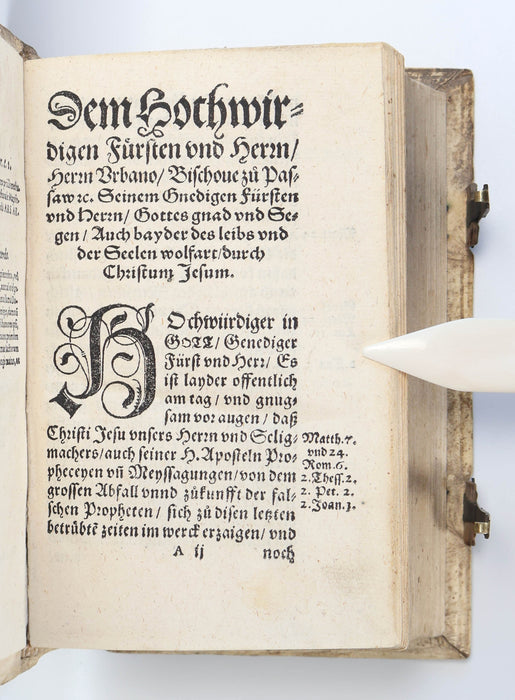 Dem Hochwir⸗
digen Fürsten vnd Herrn/
Herrn Vrbano/ Bischoue zů Pas⸗
saw ꝛc. Seinem Gnedigen Fürsten
vnd Herrn/ Gottes gnad vnd Se⸗
gen/ Auch bayder des leibs vnd
der Seelen wolfart/ durch
Christum Jesum.
HOchwürdiger in
GOTT/ Genediger
Fürst vnd Herr/ Es
ist layder offentlich
am tag/ vnd gnug⸗
sam vor augen/ daß
Christi Jesu vnsers Herrn vnd Selig⸗
machers/ auch seiner H. Aposteln Pro⸗
pheceyen vñ Weyssagungen/ von dem
grossen Abfall vnnd zůkunfft der fal⸗
schen Propheten/ sich zů disen letzten
betrůbtē zeiten im werck erzaigen/ vnd
A ij noch
Matth. 7.
vnd 24.
Rom. 6.
2. Thess. 2.
2. Pet. 2.
2. Joan. 1.